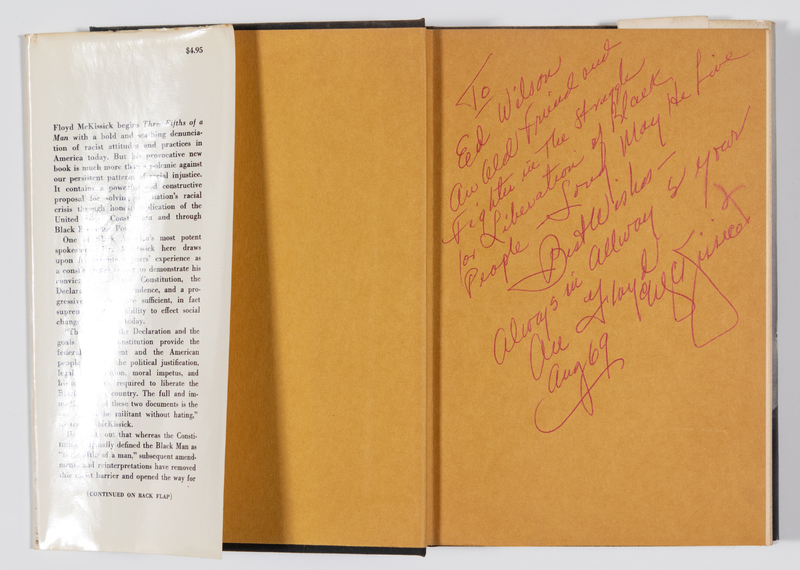 $4.95
Floyd McKissick begins Three Fifths of a
Man with a bold and denuncia-
tion of racist attitudes and practices in
America today. But his provocative new
book is much more than a polemic against
our persistent patterns of racial injustice.
It contains a powerful and constructive
proposal for solving nation's racial
crisis through honest application of the
United Constitution and through
Black
One of most potent
spokes here draws
upon years' experience as
a to demonstrate his
convic Constitution, the
Declara dence, and a pro-
gressive sufficient, in fact
suprem ability to effect social
change today.
"The the Declaration and the
goals Constitution provide the
federal ent and the American
people the political justification,
legal moral impetus, and
required to liberate the
country. The full and im-
these two documents is the
be militant without hating,"
McKissick.
out that whereas the Consti-
tution defined the Black Man as
of a man," subsequent amend-
ments and reinterpretations have removed
this barrier and opened the way for
(CONTINUED ON BACK FLAP)
To
Ed Wilson
An old Friend and
Fighter in The struggle
for Liberation of Black
People - Long May He Live
Best Wishes -
Always in all your
Floyd McKissick
Aug 69